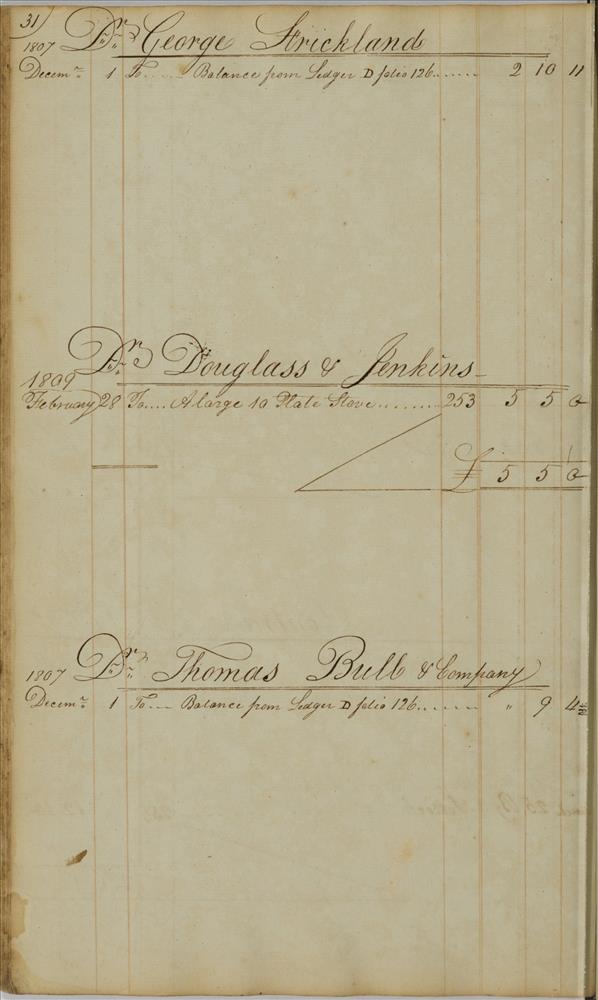 31
1807 Dr. George Strickland
Decemr. 1 To .... Balance from Ledger D folio 126 ....... 2 10 11
Dr. Douglass & Jenkins
1809
February 28 To .... A large 10 Plate Stove ........ 253 5 5 0
£ 5 5 0
1807 Dr. Thomas Bull & Company
Decemr. 1 To .... Balance from Ledger D folio 126 ....... " 9 4